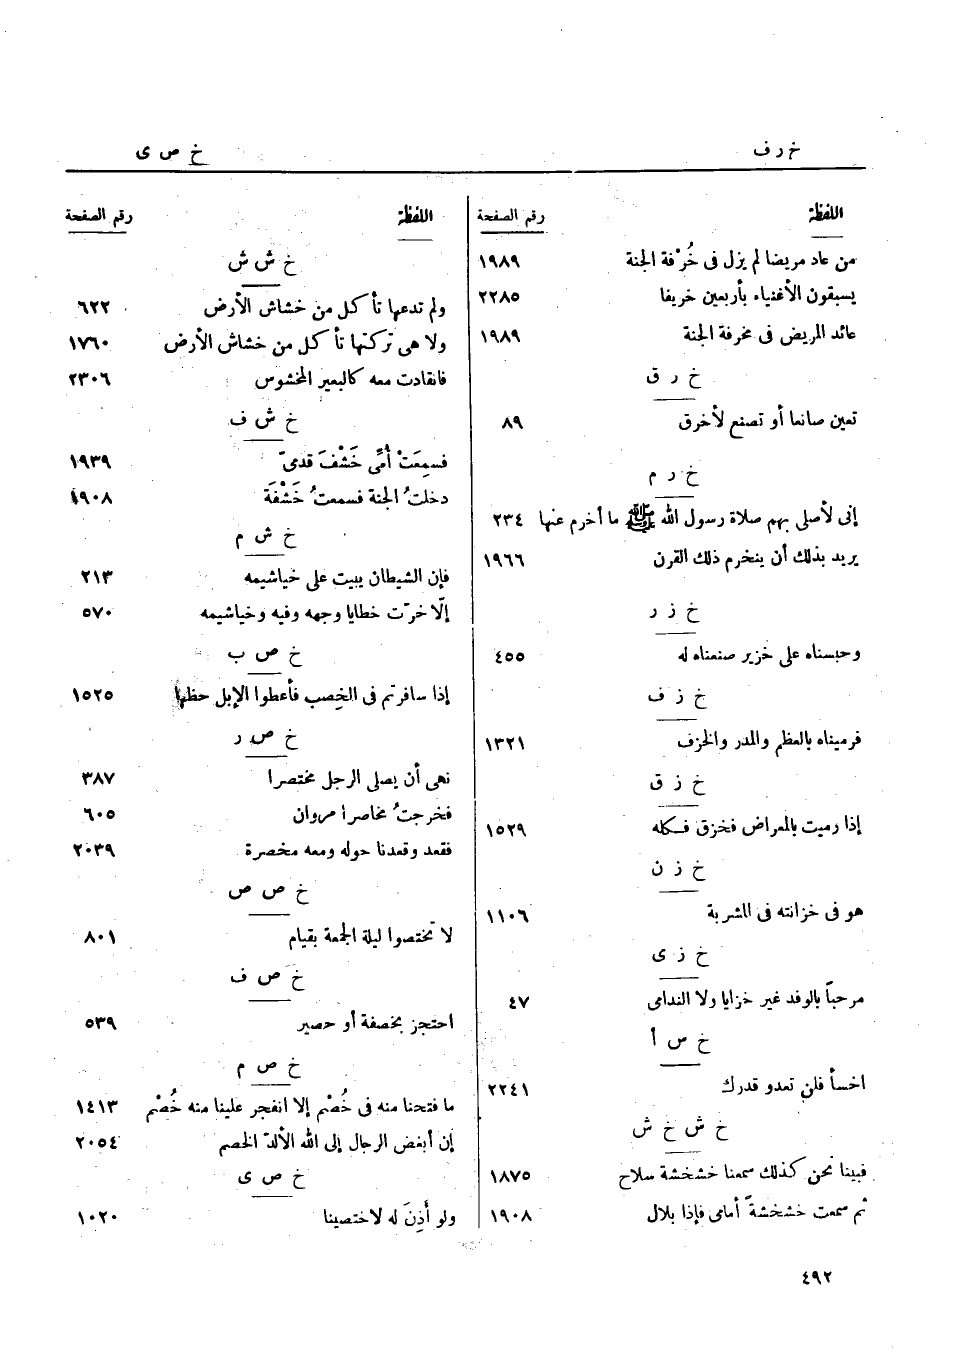 خ ر ف
خ ص ى
اللفظة رقم الصفحة
من عاد مريضا لم يزل فى خُرْفة الجنة ١٩٨٩
يسبقون الأغنياء بأربعين خريفا ٢٢٨٥
عائد المريض فى مخرفة الجنة ١٩٨٩
خ ر ق
تعين صانعا أو تصنع لأخرق ٨٩
خ ر م
إنى لأصلى بهم صلاة رسول الله ﷺ ما أخرم عنها ٢٣٤
يريد بذلك أن ينخرم ذلك القرن ١٩٦٦
خ ز ر
وحبسناه على خزير صنعناه له ٤٥٥
خ ز ف
فرميناه بالعظم والمدر والخزف ١٣٢١
خ ز ق
إذا رميت بالمعراض فخزق فكله ١٥٢٩
خ ز ن
هو فى خزانته فى المشربة ١١٠٦
خ ز ى
مرحباً بالوفد غير خزايا ولا الندامى ٤٧
خ س أ
اخسأ فلن تعدو قدرك ٢٢٤١
خ ش خ ش
فبينا نحن كذلك سمعنا خشخشة سلاح ١٨٧٥
ثم سمعت خشخشةً أمامى فإذا بلال ١٩٠٨
اللفظة رقم الصفحة
خ ش ش
ولم تدعها تأكل من خشاش الأرض ٦٢٢
ولا هى تركتها تأكل من خشاش الأرض ١٧٦٠
فانقادت معه كالبعير المخشوس ٢٣٠٦
خ ش ف
فسمِعَتْ أُمِّى خَشْفَ قدمىّ ١٩٣٩
دخلتُ الجنة فسمعتُ خَشْفَة ١٩٠٨
خ ش م
فإن الشيطان يبيت على خياشيمه ٢١٣
إلّا خرّت خطايا وجهه وفيه وخياشيمه ٥٧٠
خ ص ب
إذا سافرتم فى الخِصب فأعطوا الإبل حظها ١٥٢٥
خ ص ر
نهى أن يصلى الرجل مختصرا ٣٨٧
فخرجتُ مخاصرا مروان ٦٠٥
فقعد وقعدنا حوله ومعه مخصرة ٢٠٣٩
خ ص ص
لا تختصوا ليلة الجمعة بقيام ٨٠١
خ ص ف
احتجز بخصفة أو حصير ٥٣٩
خ ص م
ما فتحنا منه فى خُصْم إلا انفجر علينا منه خُصْم ١٤١٣
إن أبغض الرجال إلى الله الألدّ الخصم ٢٠٥٤
خ ص ى
ولو أَذِنَ له لاختصينا ١٠٢٠
٤٩٢